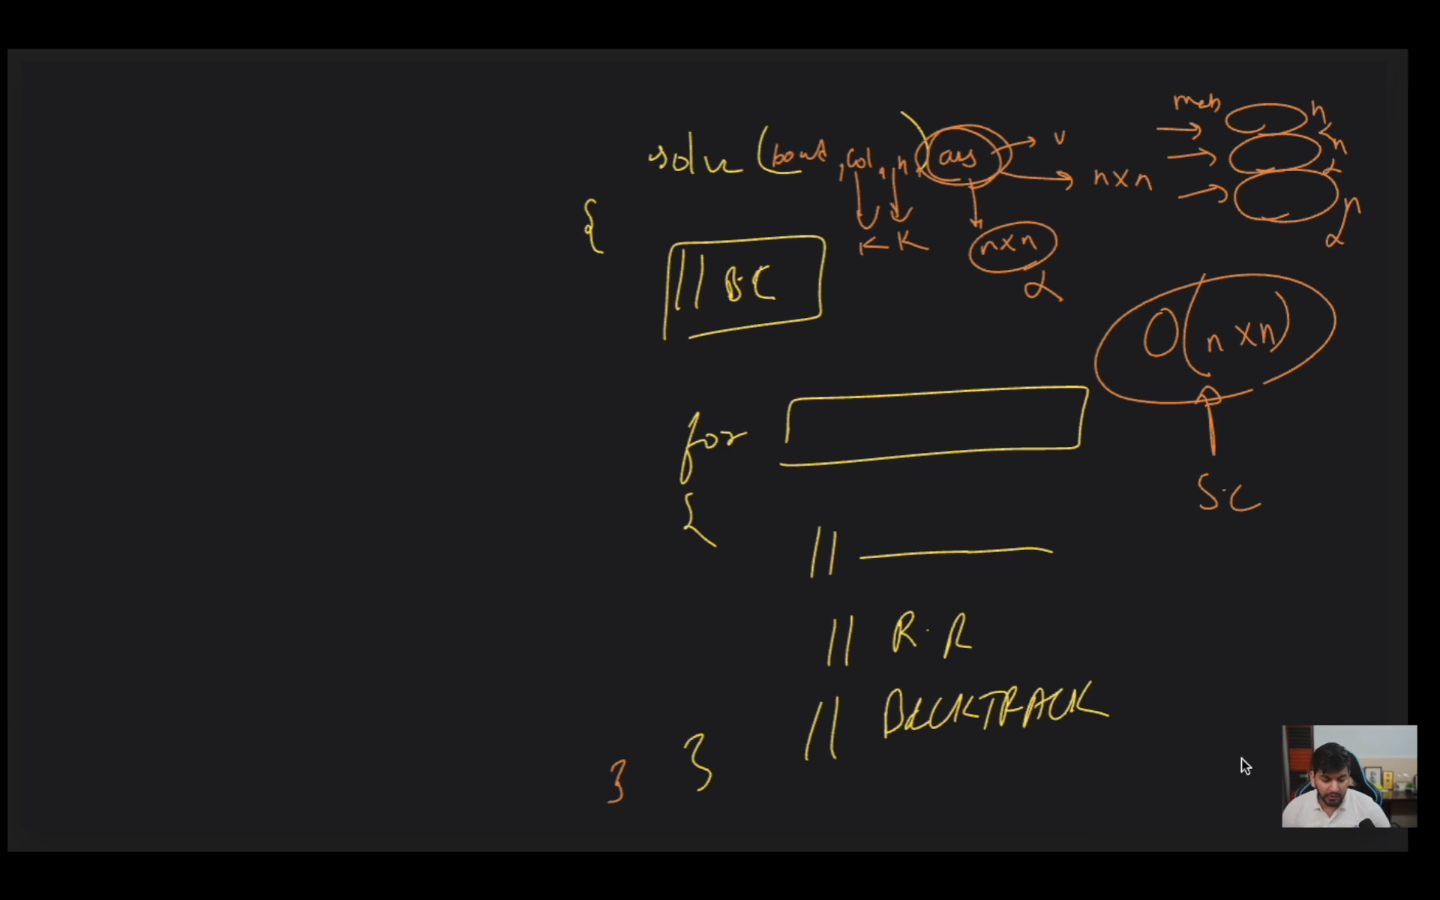 solve (board, col, n, ans) → v
→ n x n
map
n
n
n
{
K K
n x n
α
// B.C
O(n x n)
S.C
for
{
//
// R.R
// BACKTRACK
}
}